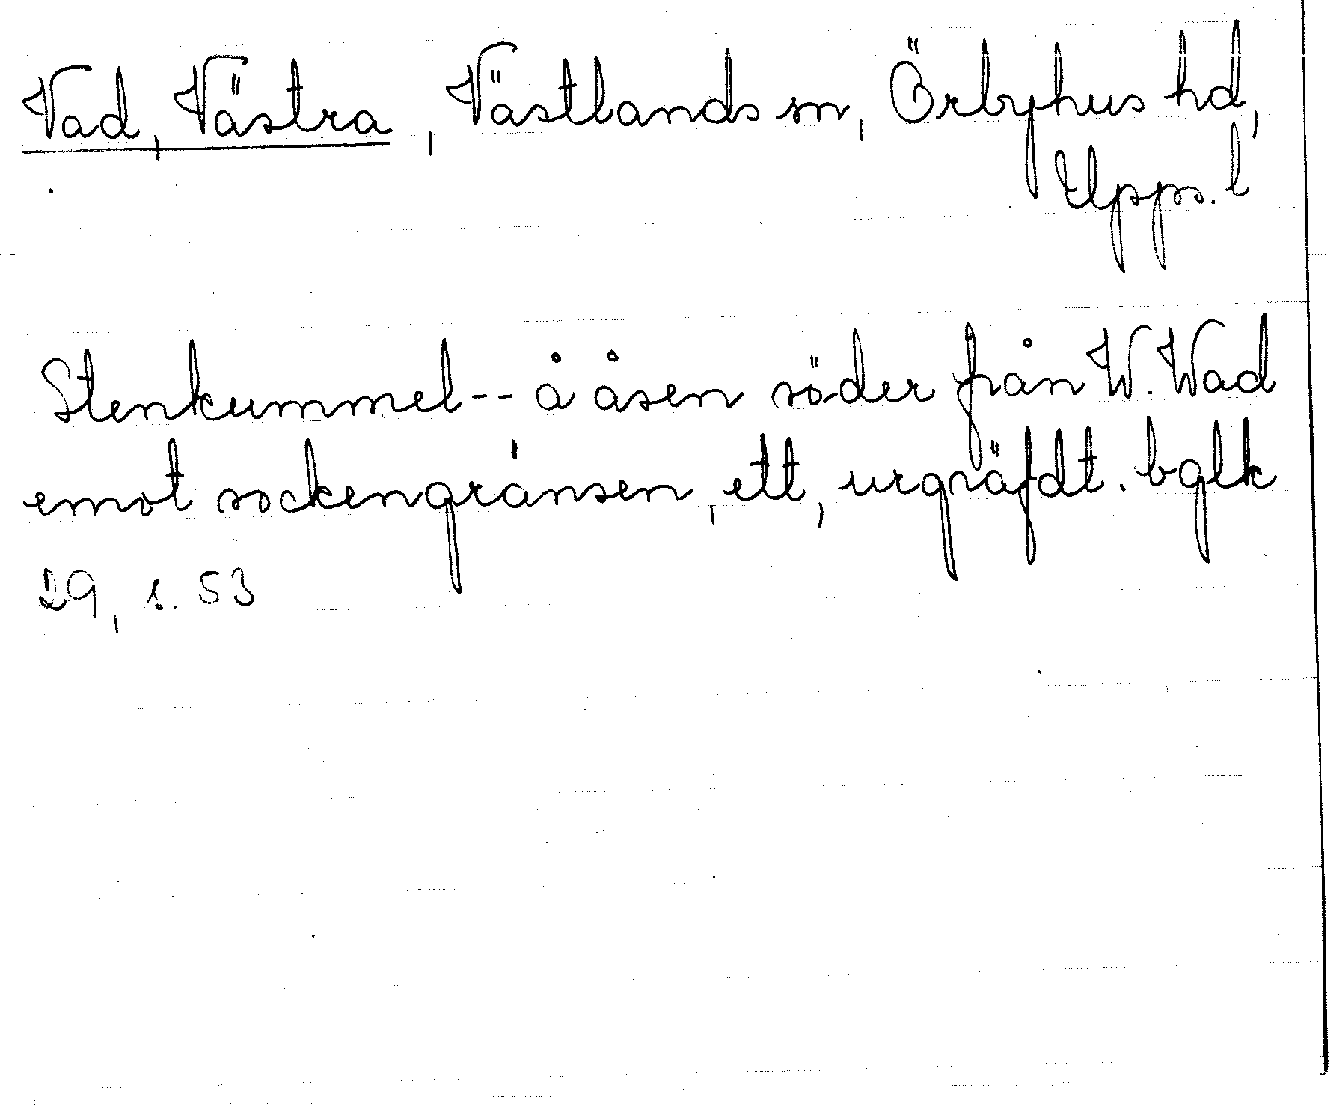 Vad, Västra, Västlands sn, Örbyhus hd,
Upps. l
Stenkummel -- å åsen söder från W. Wad
emot sockengränsen, ett, urgräfdt. bglk
29, s. 53